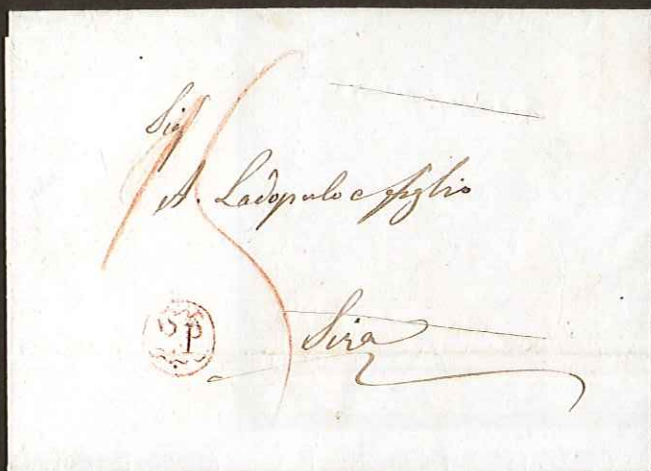 Sig
A. Ladopulo e figlio
Sira
SP